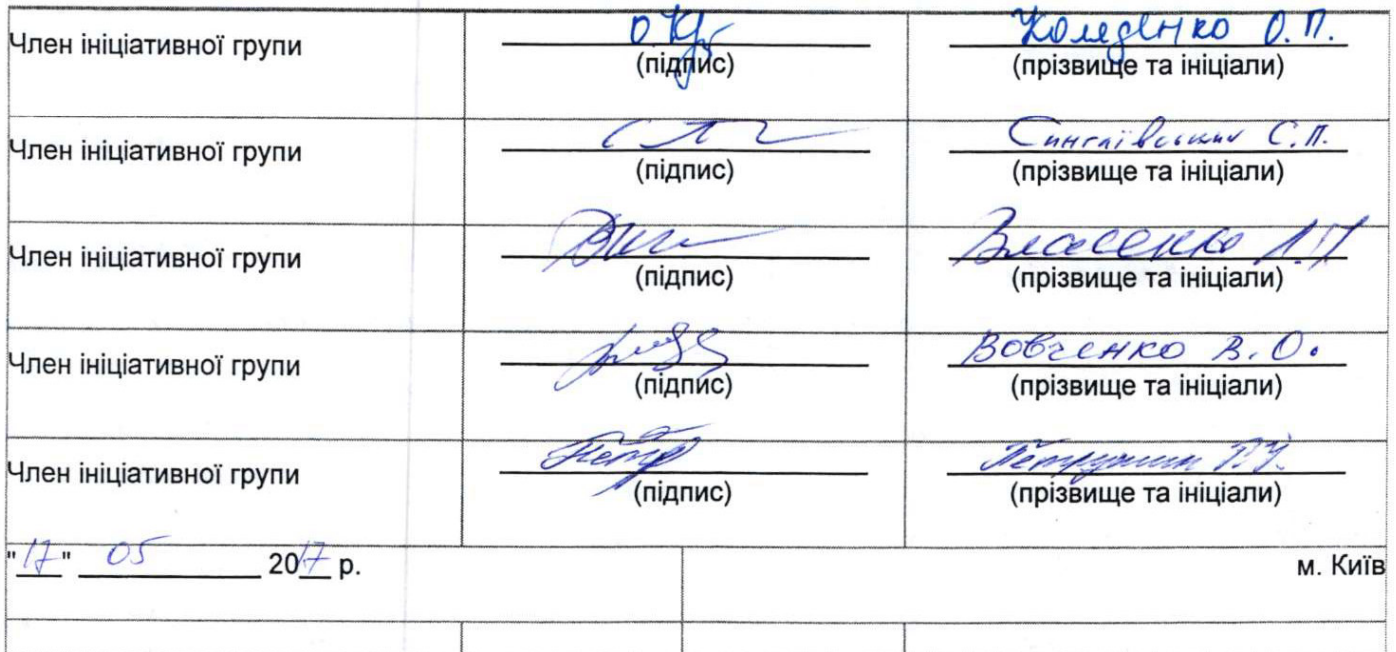 Член ініціативної групи (підпис) Коляденко О.П. (прізвище та ініціали)
Член ініціативної групи (підпис) С.П. (прізвище та ініціали)
Член ініціативної групи (підпис) Власенко Л.П (прізвище та ініціали)
Член ініціативної групи (підпис) Вовченко В.О. (прізвище та ініціали)
Член ініціативної групи (підпис) (прізвище та ініціали)
"17" 05 2017 р. м. Київ